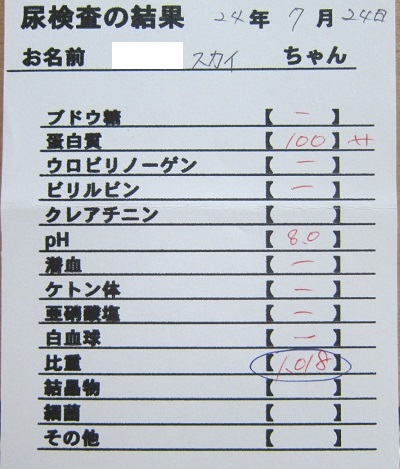 尿検査の結果 24年 7月 24日
お名前 スカイ ちゃん
ブドウ糖 【 － 】
蛋白質 【 100 】 ++
ウロビリノーゲン 【 － 】
ビリルビン 【 － 】
クレアチニン 【 】
pH 【 8.0 】
潜血 【 － 】
ケトン体 【 － 】
亜硝酸塩 【 － 】
白血球 【 － 】
比重 【 1.018 】
結晶物 【 】
細菌 【 】
その他 【 】